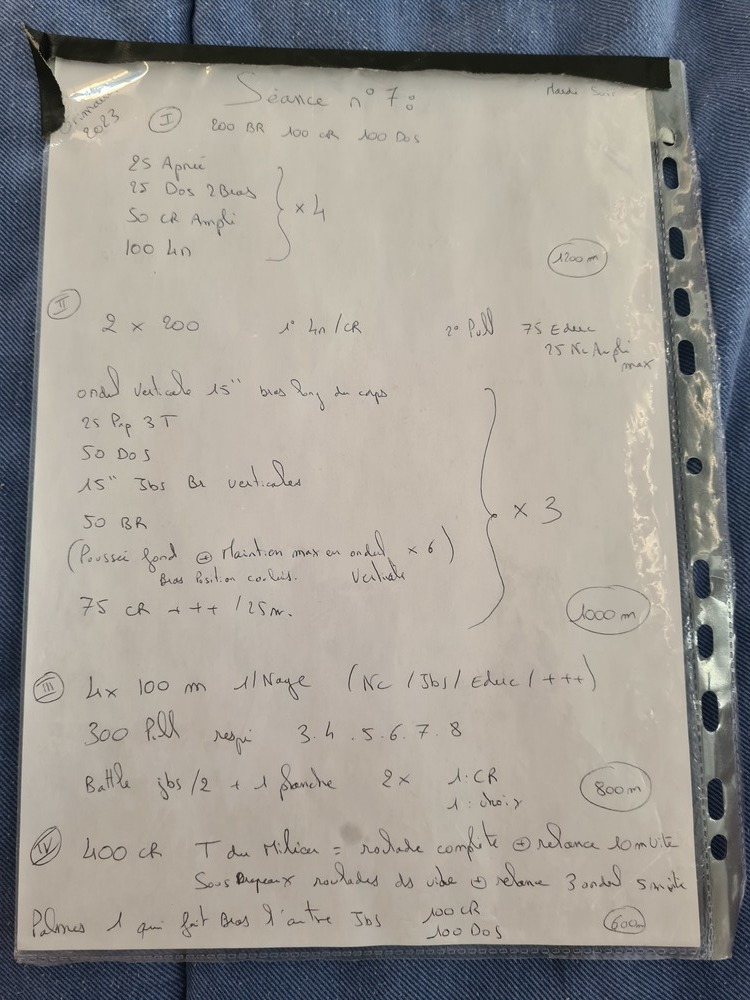 Séance n° 7 :
Mardi Soir
2023
I
200 BR 100 CR 100 Dos
25 Apnée
25 Dos 2Bras
50 CR Ampli
100 4n
x 4
1200 m
II
2 x 200 1° 4n/CR 2° Pull 75 Educ
25 Nc Ampli
max
ondul verticale 15" bras long du corps
25 Pap 3T
50 Dos
15" Jbs Br verticales
50 BR
(Poussée fond + Maintien max en ondul x 6)
Bras Position coulée. Verticale
75 CR +++ /25m.
x 3
1000 m
III 4x 100 m 1/Nage (Nc / Jbs / Educ / +++)
300 Pull respi 3.4.5.6.7.8
Battle jbs/2 + 1 planche 2x 1:CR
1: choix
800m
IV 400 CR T du Milieu = roulade complète + relance 10m vite
Sous Drapeaux roulades ds vide + relance 3 ondul 5m vite
Palmes 1 qui fait Bras l'autre Jbs 100 CR
100 Dos
600m